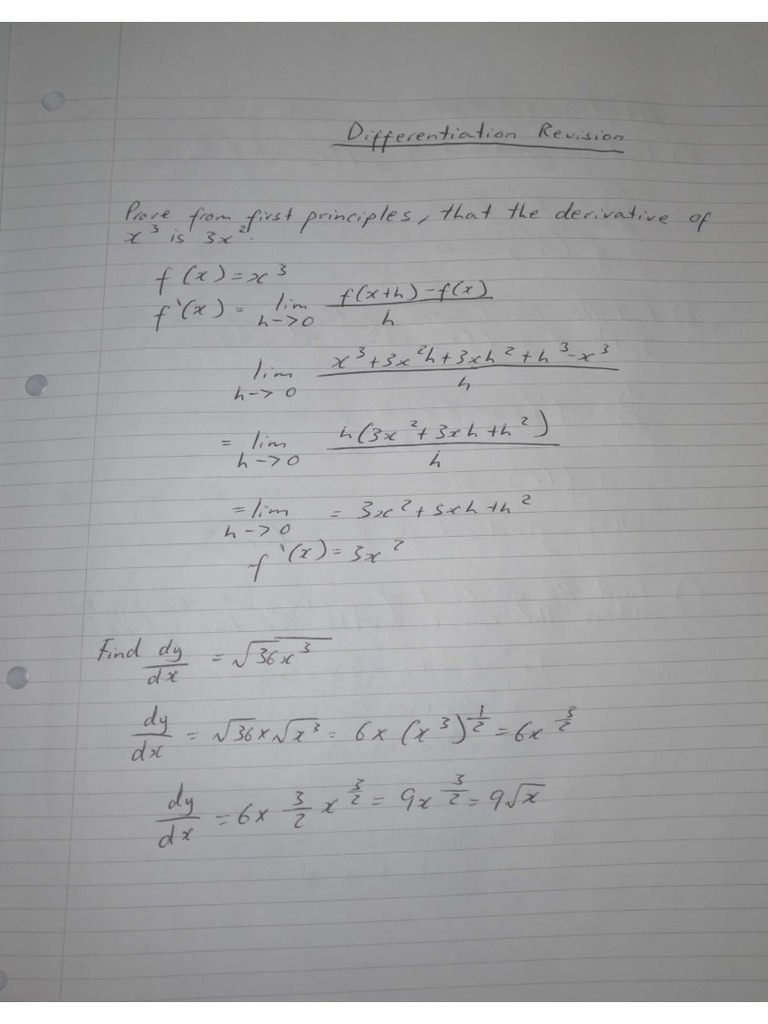 Differentiation Revision
Prove from first principles, that the derivative of
x³ is 3x².
f(x) = x³
f'(x) = lim h->0 f(x+h)-f(x) / h
lim h->0 x³+3x²h+3xh²+h³-x³ / h
= lim h->0 h(3x²+3xh+h²) / h
= lim h->0 = 3x²+3xh+h²
f'(x) = 3x²
Find dy/dx = √36x³
dy/dx = √36 × √x³ = 6 × (x³)^1/2 = 6x^3/2
dy/dx = 6 × 3/2 x^3/2 = 9x^3/2 = 9√x